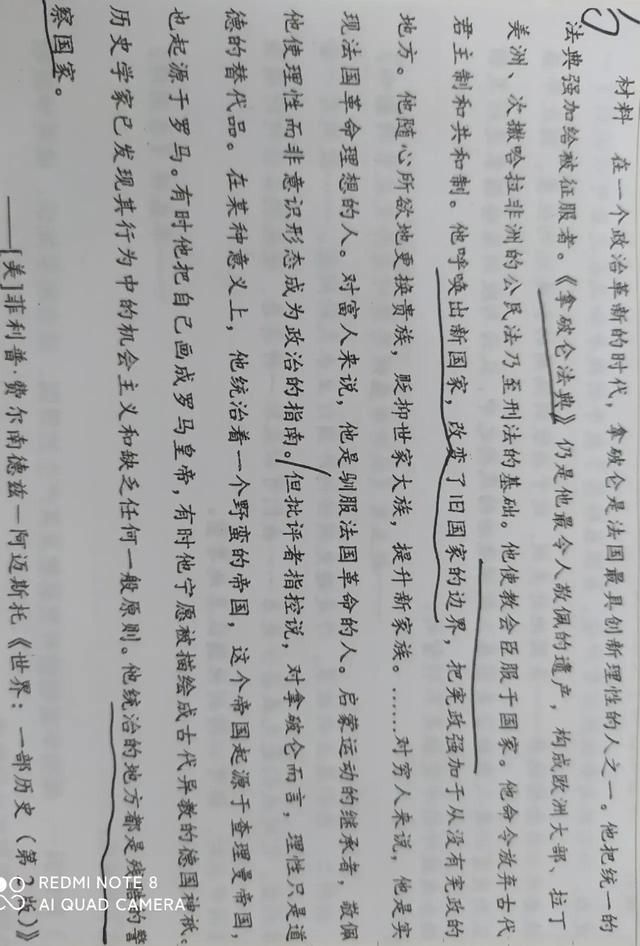 材料 在一个政治革新的时代，拿破仑是法国最具创新理性的人之一。他把统一的
法典强加给被征服者。《拿破仑法典》仍是他最令人敬佩的遗产，构成欧洲大部、拉丁
美洲、次撒哈拉非洲的公民法乃至刑法的基础。他使教会臣服于国家。他命令放弃古代
君主制和共和制。他呼唤出新国家，改变了旧国家的边界，把宪政强加于从没有宪政的
地方。他随心所欲地更换贵族，贬抑世家大族，提升新家族。……对穷人来说，他是实
现法国革命理想的人。对富人来说，他是驯服法国革命的人。启蒙运动的继承者，敬佩
他使理性而非意识形态成为政治的指南。但批评者指控说，对拿破仑而言，理性只是道
德的替代品。在某种意义上，他统治着一个野蛮的帝国，这个帝国起源于查理曼帝国，
也起源于罗马。有时他把自己画成罗马皇帝，有时他宁愿被描绘成古代异教的德国神祇。
历史学家已发现其行为中的机会主义和缺乏任何一般原则。他统治的地方都是残酷的警
察国家。
——[美]菲利普·费尔南德兹－阿迈斯托《世界：一部历史（第2版）》
REDMI NOTE 8
AI QUAD CAMERA